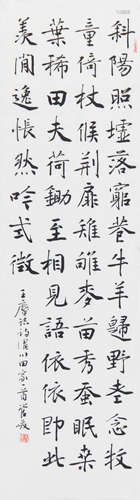 斜陽照墟落窮巷牛羊歸野老念牧
童倚杖候荊扉雉雊麥苗秀蠶眠桑
葉稀田夫荷鋤至相見語依依即此
羨閒逸悵然吟式微
王摩詰詩渭川田家一首管峻